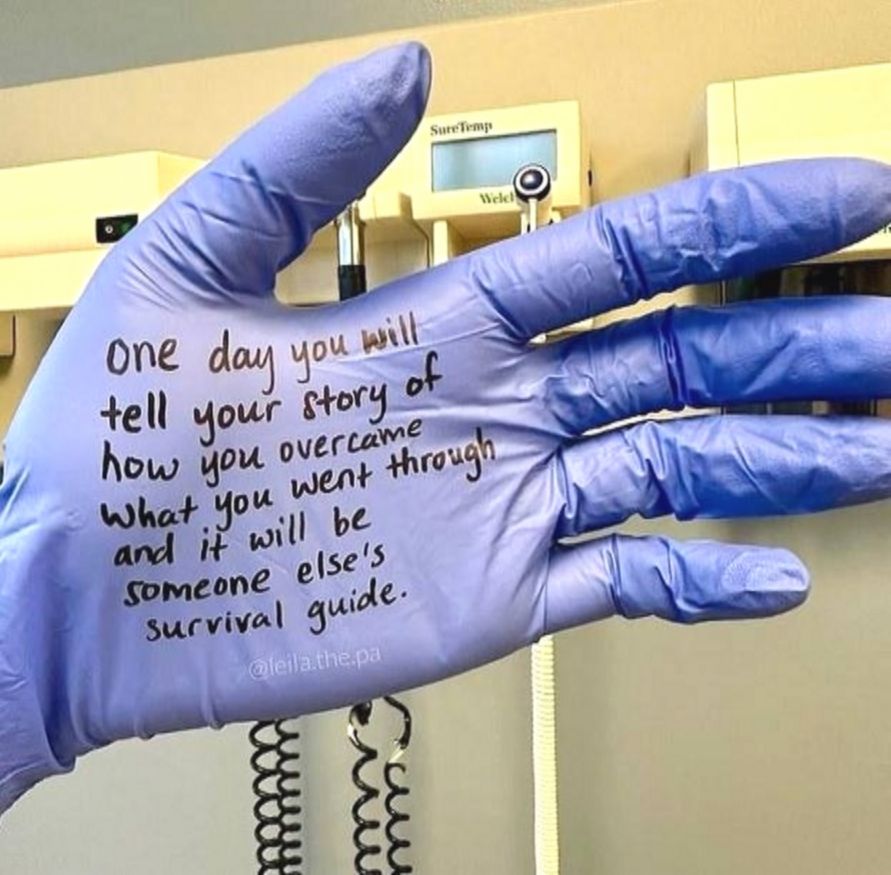 SureTemp
Welch
one day you will
tell your story of
how you overcame
what you went through
and it will be
someone else's
survival guide.
@leila.the.pa